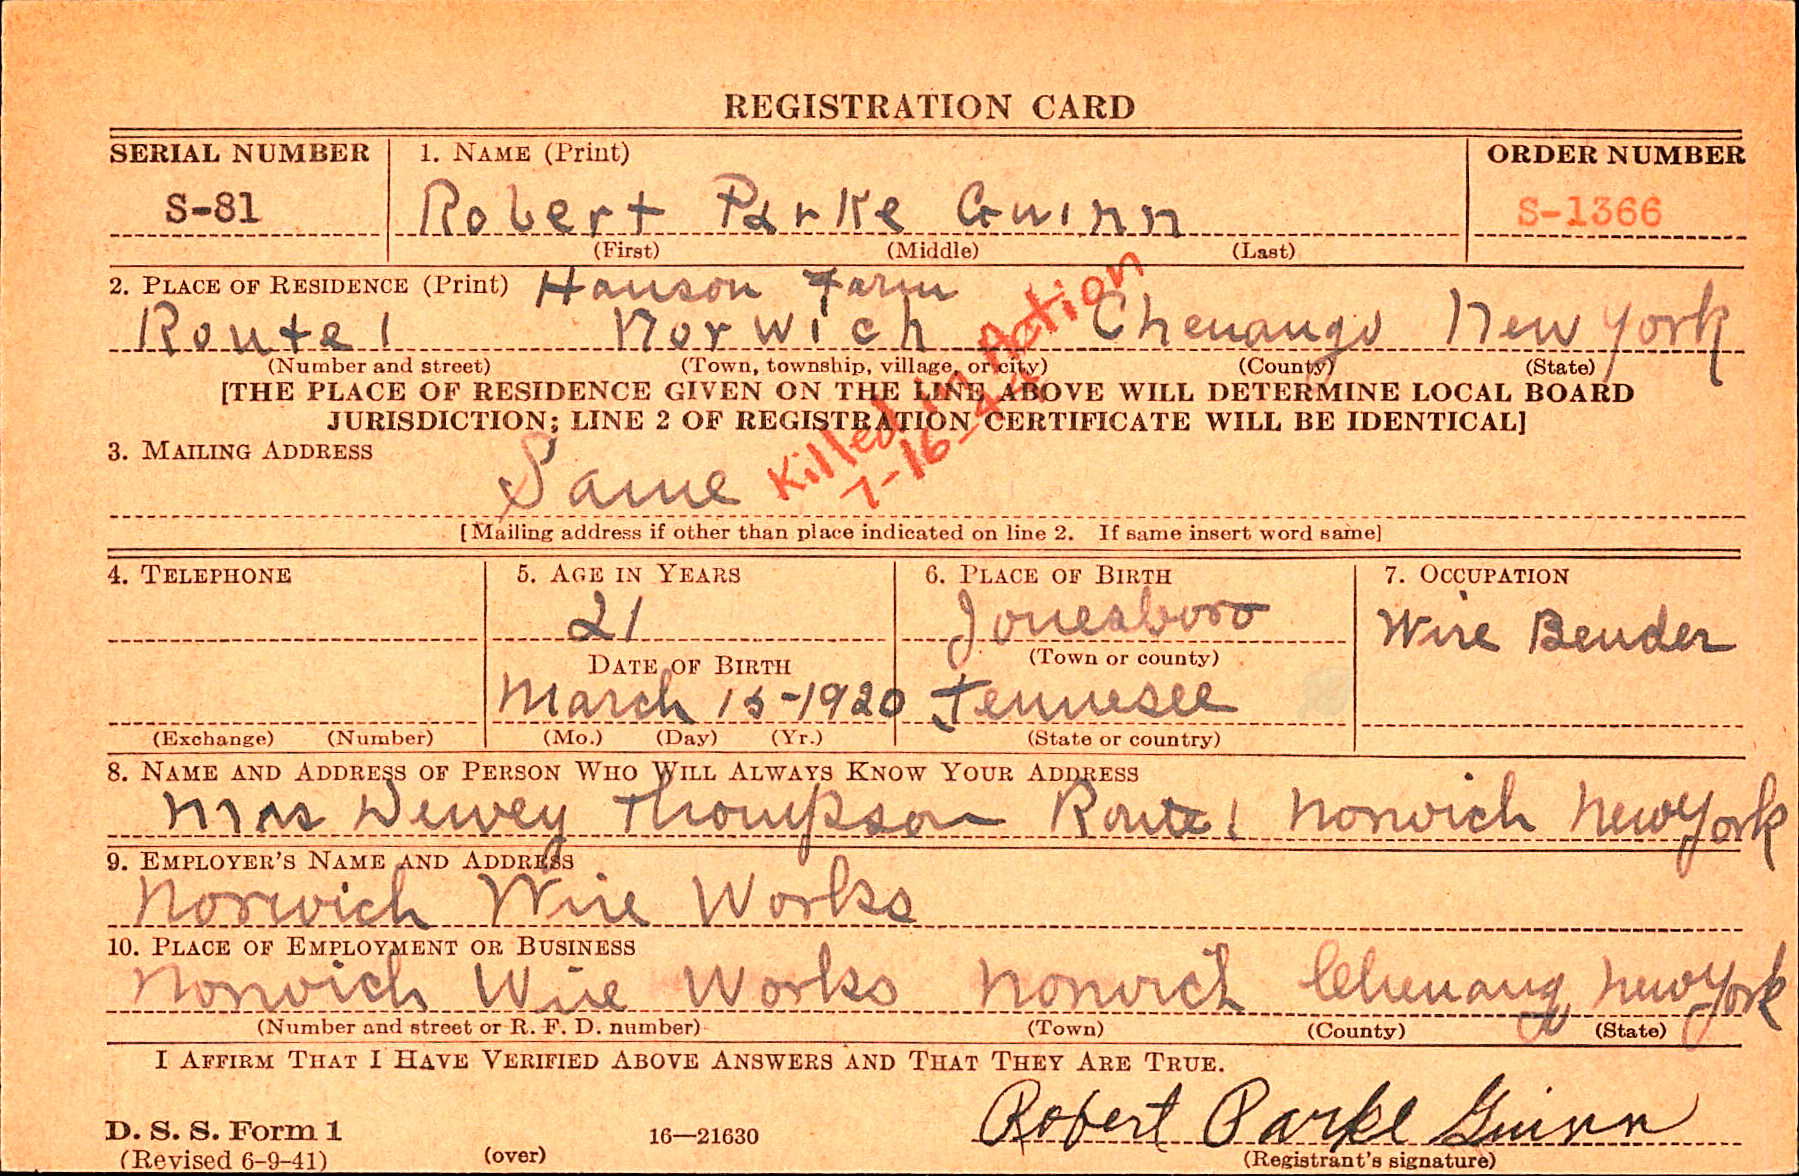 REGISTRATION CARD
SERIAL NUMBER 1. NAME (Print) ORDER NUMBER
S-81 Robert Parke Guinn S-1366
(First) (Middle) (Last)
2. PLACE OF RESIDENCE (Print) Hanson Farm
Route 1 Norwich Chenango New York
(Number and street) (Town, township, village, or city) (County) (State)
[THE PLACE OF RESIDENCE GIVEN ON THE LINE ABOVE WILL DETERMINE LOCAL BOARD
JURISDICTION; LINE 2 OF REGISTRATION CERTIFICATE WILL BE IDENTICAL]
Killed in Action
7-16-44
3. MAILING ADDRESS
Same
[Mailing address if other than place indicated on line 2. If same insert word same]
4. TELEPHONE 5. AGE IN YEARS 6. PLACE OF BIRTH 7. OCCUPATION
21 Jonesboro Wire Bender
DATE OF BIRTH (Town or county)
March 15-1920 Tennesee
(Exchange) (Number) (Mo.) (Day) (Yr.) (State or country)
8. NAME AND ADDRESS OF PERSON WHO WILL ALWAYS KNOW YOUR ADDRESS
Mrs Dewey Thompson Route 1 Norwich New York
9. EMPLOYER'S NAME AND ADDRESS
Norwich Wire Works
10. PLACE OF EMPLOYMENT OR BUSINESS
Norwich Wire Works Norwich Chenango New York
(Number and street or R. F. D. number) (Town) (County) (State)
I AFFIRM THAT I HAVE VERIFIED ABOVE ANSWERS AND THAT THEY ARE TRUE.
D. S. S. Form 1 Robert Parke Guinn
(Revised 6-9-41) (over) 16—21630 (Registrant's signature)